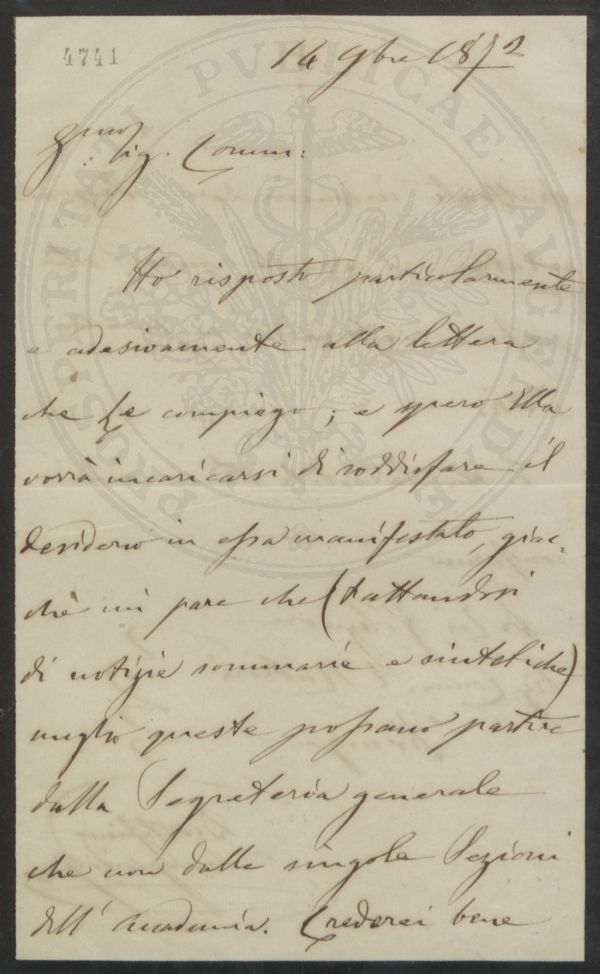 4741
14 9bre 1872
Sig. Comm:
Ho risposto particolarmente
e adesivamente alla lettera
che Le compiego; e spero Ella
vorrà incaricarsi di soddisfare il
desiderio in essa manifestato, giac-
chè mi pare che (trattandosi
di notizie sommarie e sintetiche)
meglio queste possano partire
dalla Segreteria generale
che non dalle singole Sezioni
dell' Accademia. Crederei bene
PROSPERITATI PVBLICAE AVGENDAE